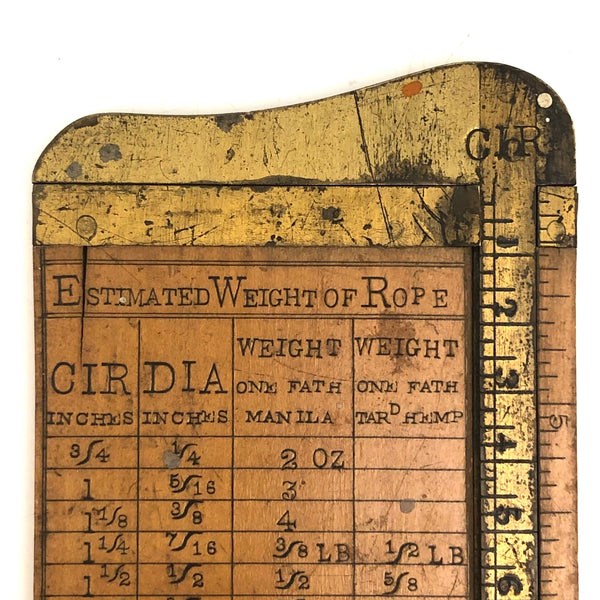 CIR
ESTIMATED WEIGHT OF ROPE
CIR INCHES DIA INCHES WEIGHT ONE FATH MANILA WEIGHT ONE FATH TARD HEMP
3/4 1/4 2 OZ
1 5/16 3
1 1/8 3/8 4
1 1/4 7/16 3/8 LB 1/2 LB
1 1/2 1/2 1/2 5/8
1
2
3
4
5
6
5